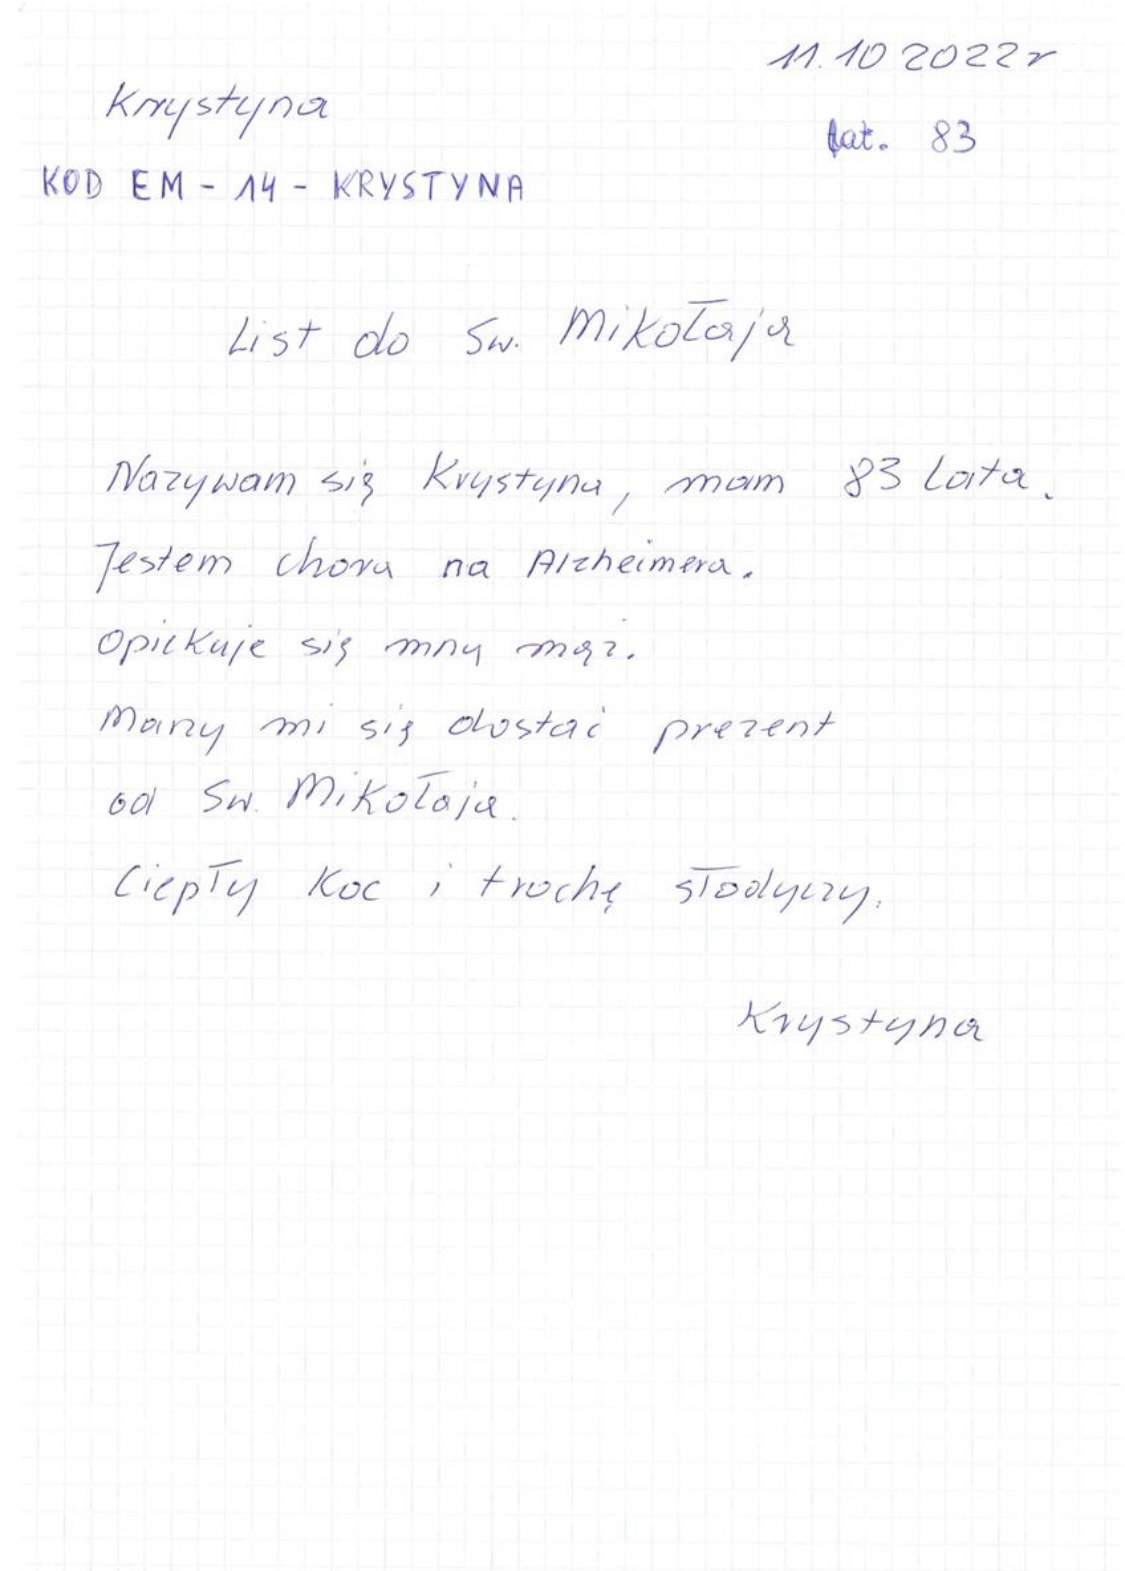 11.10 2022r
Krystyna
Lat. 83
KOD EM - 14 - KRYSTYNA
List do Św. Mikołaja
Nazywam się Krystyna, mam 83 Lata.
Jestem chora na Alzheimera.
Opiekuje się mną mąż.
Marzy mi się dostać prezent
od Św. Mikołaja.
Ciepły Koc i trochę słodyczy.
Krystyna